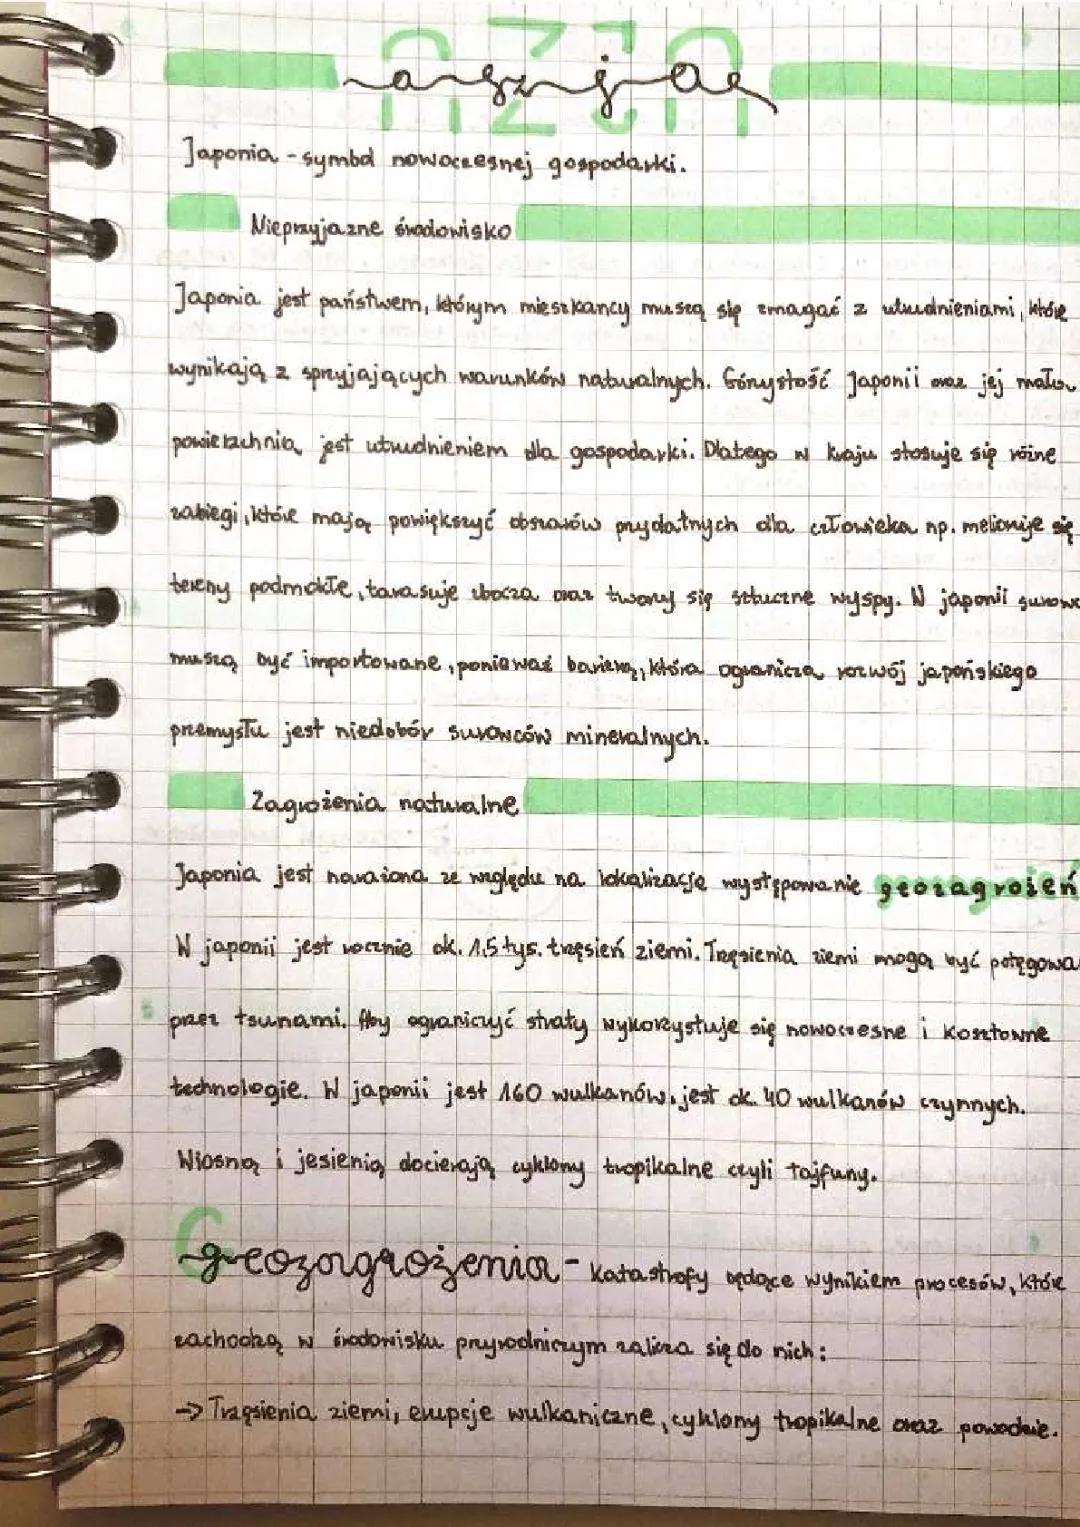 azja
Japonia - symbol nowoczesnej gospodarki.
Nieprzyjazne środowisko
Japonia jest państwem, którym mieszkańcy muszą się zmagać z utrudnieniami, które
wynikają z spryjających warunków naturalnych. Górzystość Japonii oraz jej mała
powierzchnia jest utrudnieniem dla gospodarki. Dlatego w kraju stosuje się różne
zabiegi, które mają powiększyć obszarów przydatnych dla człowieka np. melioruje się
tereny podmokłe, tarasuje zbocza oraz tworzy się sztuczne wyspy. W japonii surowc
muszą być importowane, ponieważ barierą, która ogranicza rozwój japońskiego
przemysłu jest niedobór surowców mineralnych.
Zagrożenia naturalne
Japonia jest narażona ze względu na lokalizacje występowanie geozagrożeń
W japonii jest rocznie ok. 1,5 tys. trzęsień ziemi. Trzęsienia ziemi mogą być potęgowa
przez tsunami. Aby ograniczyć straty wykorzystuje się nowoczesne i kosztowne
technologie. W japonii jest 160 wulkanów, jest ok. 40 wulkanów czynnych.
Wiosną i jesienią docierają cyklony tropikalne czyli tajfuny.
geozagrożenia - katastrofy będące wynikiem procesów, które
zachodzą w środowisku przyrodniczym zalicza się do nich:
→ Trzęsienia ziemi, erupcje wulkaniczne, cyklony tropikalne oraz powodzie.